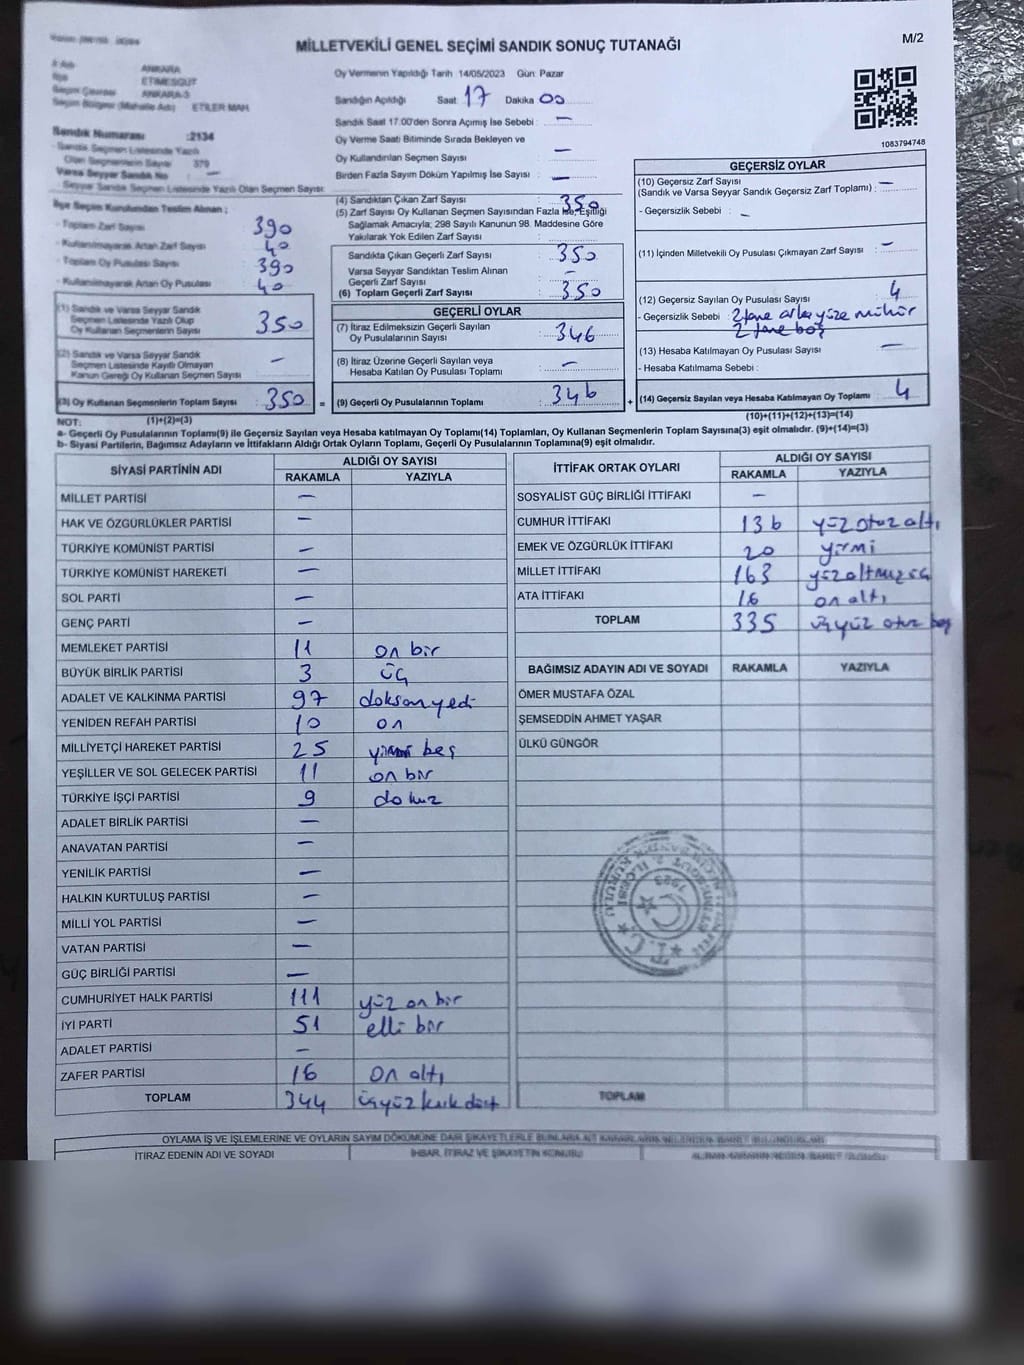 MİLLETVEKİLİ GENEL SEÇİMİ SANDIK SONUÇ TUTANAĞI
M/2
İl Adı ANKARA
İlçe ETİMESGUT
Seçim Çevresi ANKARA-3
Seçim Bölgesi (Mahalle Adı) ETİLER MAH.
Sandık Numarası :2134
Sandık Seçmen Listesinde Yazılı
Olan Seçmenlerin Sayısı 379
Varsa Seyyar Sandık No —
Seyyar Sandık Seçmen Listesinde Yazılı Olan Seçmen Sayısı:
İlçe Seçim Kurulundan Teslim Alınan ;
- Toplam Zarf Sayısı 390
- Kullanılmayarak Artan Zarf Sayısı 40
- Toplam Oy Pusulası Sayısı 390
- Kullanılmayarak Artan Oy Pusulası 40
(1) Sandık ve Varsa Seyyar Sandık
Seçmen Listesinde Yazılı Olup
Oy Kullanan Seçmenlerin Sayısı 350
(2) Sandık ve Varsa Seyyar Sandık
Seçmen Listesinde Kayıtlı Olmayan
Kanun Gereği Oy Kullanan Seçmen Sayısı —
(3) Oy Kullanan Seçmenlerin Toplam Sayısı : 350 =
(1)+(2)=(3)
Oy Vermenin Yapıldığı Tarih 14/05/2023 Gün Pazar
Sandığın Açıldığı Saat 17 Dakika 00
Sandık Saat 17.00'den Sonra Açımış İse Sebebi : —
Oy Verme Saati Bitiminde Sırada Bekleyen ve
Oy Kullandırılan Seçmen Sayısı —
Birden Fazla Sayım Döküm Yapılmış İse Sayısı : —
(4) Sandıktan Çıkan Zarf Sayısı : 350
(5) Zarf Sayısı Oy Kullanan Seçmen Sayısından Fazla İse, Eşitliği
Sağlamak Amacıyla; 298 Sayılı Kanunun 98. Maddesine Göre
Yakılarak Yok Edilen Zarf Sayısı :
Sandıkta Çıkan Geçerli Zarf Sayısı : 350
Varsa Seyyar Sandıktan Teslim Alınan
Geçerli Zarf Sayısı : —
(6) Toplam Geçerli Zarf Sayısı : 350
GEÇERLİ OYLAR
(7) İtiraz Edilmeksizin Geçerli Sayılan
Oy Pusulalarının Sayısı : 346
(8) İtiraz Üzerine Geçerli Sayılan veya
Hesaba Katılan Oy Pusulası Toplamı : —
(9) Geçerli Oy Pusulalarının Toplamı : 346 +
1083794748
GEÇERSİZ OYLAR
(10) Geçersiz Zarf Sayısı
(Sandık ve Varsa Seyyar Sandık Geçersiz Zarf Toplamı) : —
- Geçersizlik Sebebi : —
(11) İçinden Milletvekili Oy Pusulası Çıkmayan Zarf Sayısı : —
(12) Geçersiz Sayılan Oy Pusulası Sayısı : 4
- Geçersizlik Sebebi : 2 tane arka yüze mühür
2 tane boş
(13) Hesaba Katılmayan Oy Pusulası Sayısı : —
- Hesaba Katılmama Sebebi :
(14) Geçersiz Sayılan veya Hesaba Katılmayan Oy Toplamı : 4
(10)+(11)+(12)+(13)=(14)
NOT:
a- Geçerli Oy Pusulalarının Toplamı(9) ile Geçersiz Sayılan veya Hesaba katılmayan Oy Toplamı(14) Toplamları, Oy Kullanan Seçmenlerin Toplam Sayısına(3) eşit olmalıdır. (9)+(14)=(3)
b- Siyasi Partilerin, Bağımsız Adayların ve İttifakların Aldığı Ortak Oyların Toplamı, Geçerli Oy Pusulalarının Toplamına(9) eşit olmalıdır.
SİYASİ PARTİNİN ADI ALDIĞI OY SAYISI
RAKAMLA YAZIYLA
MİLLET PARTİSİ —
HAK VE ÖZGÜRLÜKLER PARTİSİ —
TÜRKİYE KOMÜNİST PARTİSİ —
TÜRKİYE KOMÜNİST HAREKETİ —
SOL PARTİ —
GENÇ PARTİ —
MEMLEKET PARTİSİ 11 on bir
BÜYÜK BİRLİK PARTİSİ 3 üç
ADALET VE KALKINMA PARTİSİ 97 doksan yedi
YENİDEN REFAH PARTİSİ 10 on
MİLLİYETÇİ HAREKET PARTİSİ 25 yirmi beş
YEŞİLLER VE SOL GELECEK PARTİSİ 11 on bir
TÜRKİYE İŞÇİ PARTİSİ 9 dokuz
ADALET BİRLİK PARTİSİ —
ANAVATAN PARTİSİ —
YENİLİK PARTİSİ —
HALKIN KURTULUŞ PARTİSİ —
MİLLİ YOL PARTİSİ —
VATAN PARTİSİ —
GÜÇ BİRLİĞİ PARTİSİ —
CUMHURİYET HALK PARTİSİ 111 yüz on bir
İYİ PARTİ 51 elli bir
ADALET PARTİSİ —
ZAFER PARTİSİ 16 on altı
TOPLAM 344 üçyüz kırk dört
İTTİFAK ORTAK OYLARI ALDIĞI OY SAYISI
RAKAMLA YAZIYLA
SOSYALİST GÜÇ BİRLİĞİ İTTİFAKI —
CUMHUR İTTİFAKI 136 yüz otuz altı
EMEK VE ÖZGÜRLÜK İTTİFAKI 20 yirmi
MİLLET İTTİFAKI 163 yüz altmış üç
ATA İTTİFAKI 16 on altı
TOPLAM 335 üçyüz otuz beş
BAĞIMSIZ ADAYIN ADI VE SOYADI RAKAMLA YAZIYLA
ÖMER MUSTAFA ÖZAL
ŞEMSEDDİN AHMET YAŞAR
ÜLKÜ GÜNGÖR
T.C.
TOPLAM
OYLAMA İŞ VE İŞLEMLERİNE VE OYLARIN SAYIM DÖKÜMÜNE DAİR ŞİKAYETLERLE
İTİRAZ EDENİN ADI VE SOYADI İHBAR, İTİRAZ VE ŞİKAYETİN KONUSU